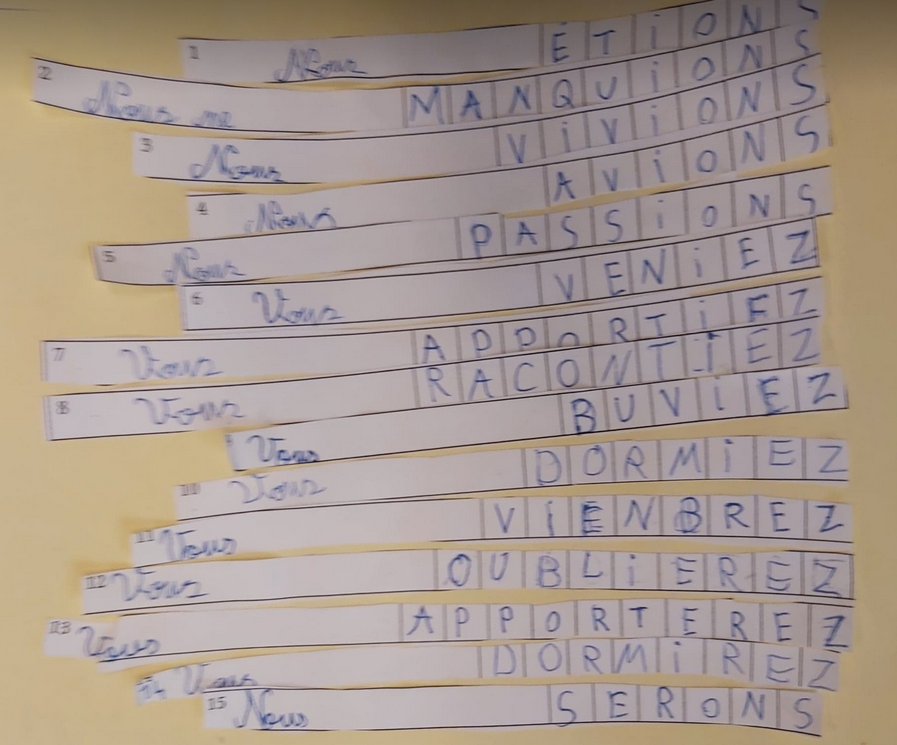 1 Nous ETiONS
2 Nous me MANQUiONS
3 Nous ViViONS
4 Nous AViONS
5 Nous PASSiONS
6 Vous VENiEZ
7 Vous APPORTiEZ
8 Vous RACONTIEZ
Vous BUViEZ
10 Vous DORMiEZ
11 Vous VIENBREZ
12 Vous OUBLiEREZ
13 Vous APPORTEREZ
14 Vous DORMiREZ
15 Nous SERONS